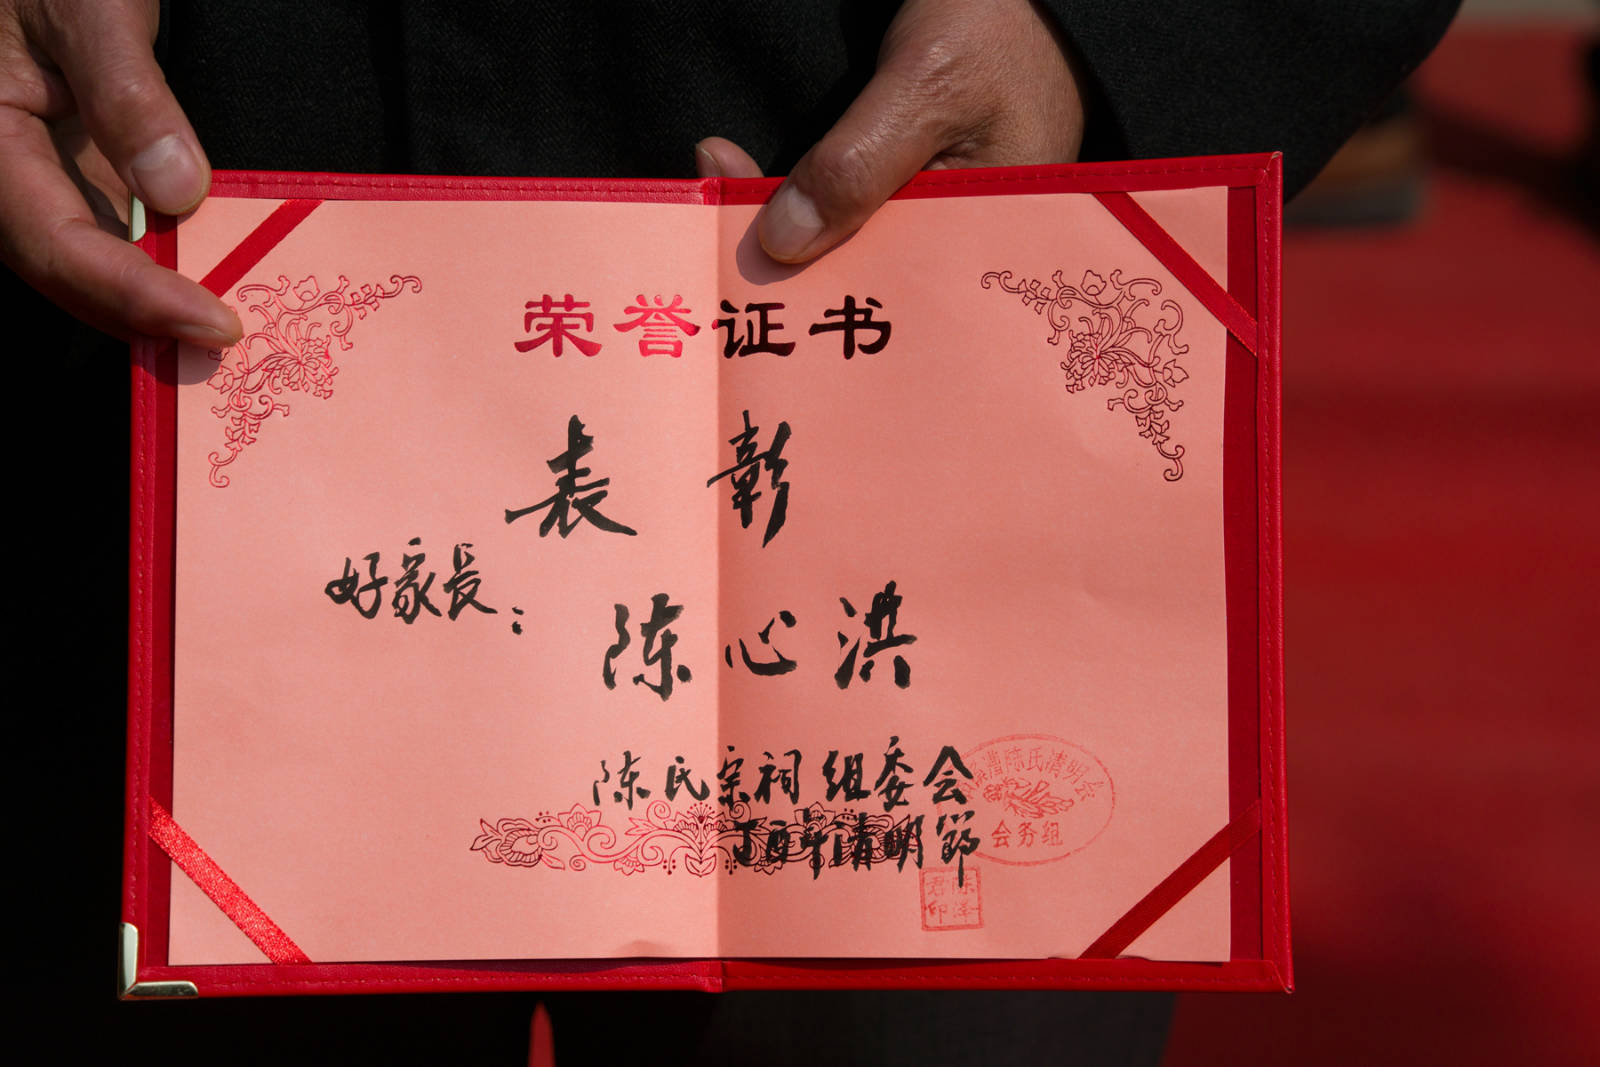 荣誉证书
表彰
好家长：
陈心洪
陈氏宗祠组委会
丁酉年清明節
漕陈氏清明会
会务组
陈泽
君印